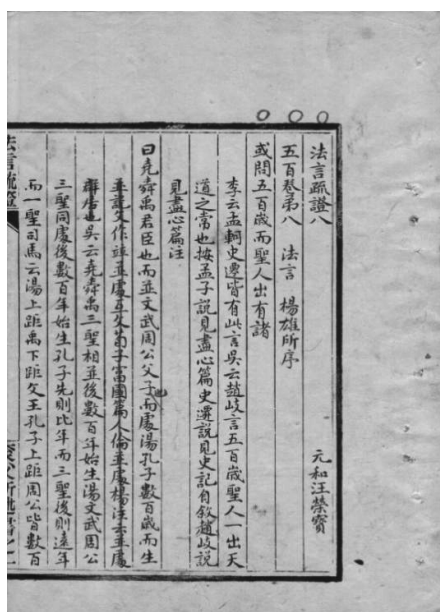 法言疏證八
元和汪榮寶
五百卷第八　法言　楊雄所序
或問五百歲而聖人出有諸
李云孟軻史遷皆有此言吳云趙岐言五百歲聖人一出天
道之常也按孟子說見盡心篇史遷說見史記自敘趙岐說
見盡心篇注
曰堯舜禹君臣也而並文武周公父子而處湯孔子數百歲而生
並說文作竝並處互文荀子富國篇人倫並處楊注云並處
羣居也吳云堯舜禹三聖相並後數百年始生湯文武周公
三聖同處後數百年始生孔子先則比年而三聖後則遠年
而一聖司馬云湯上距禹下距文王孔子上距周公皆數百
法言疏證